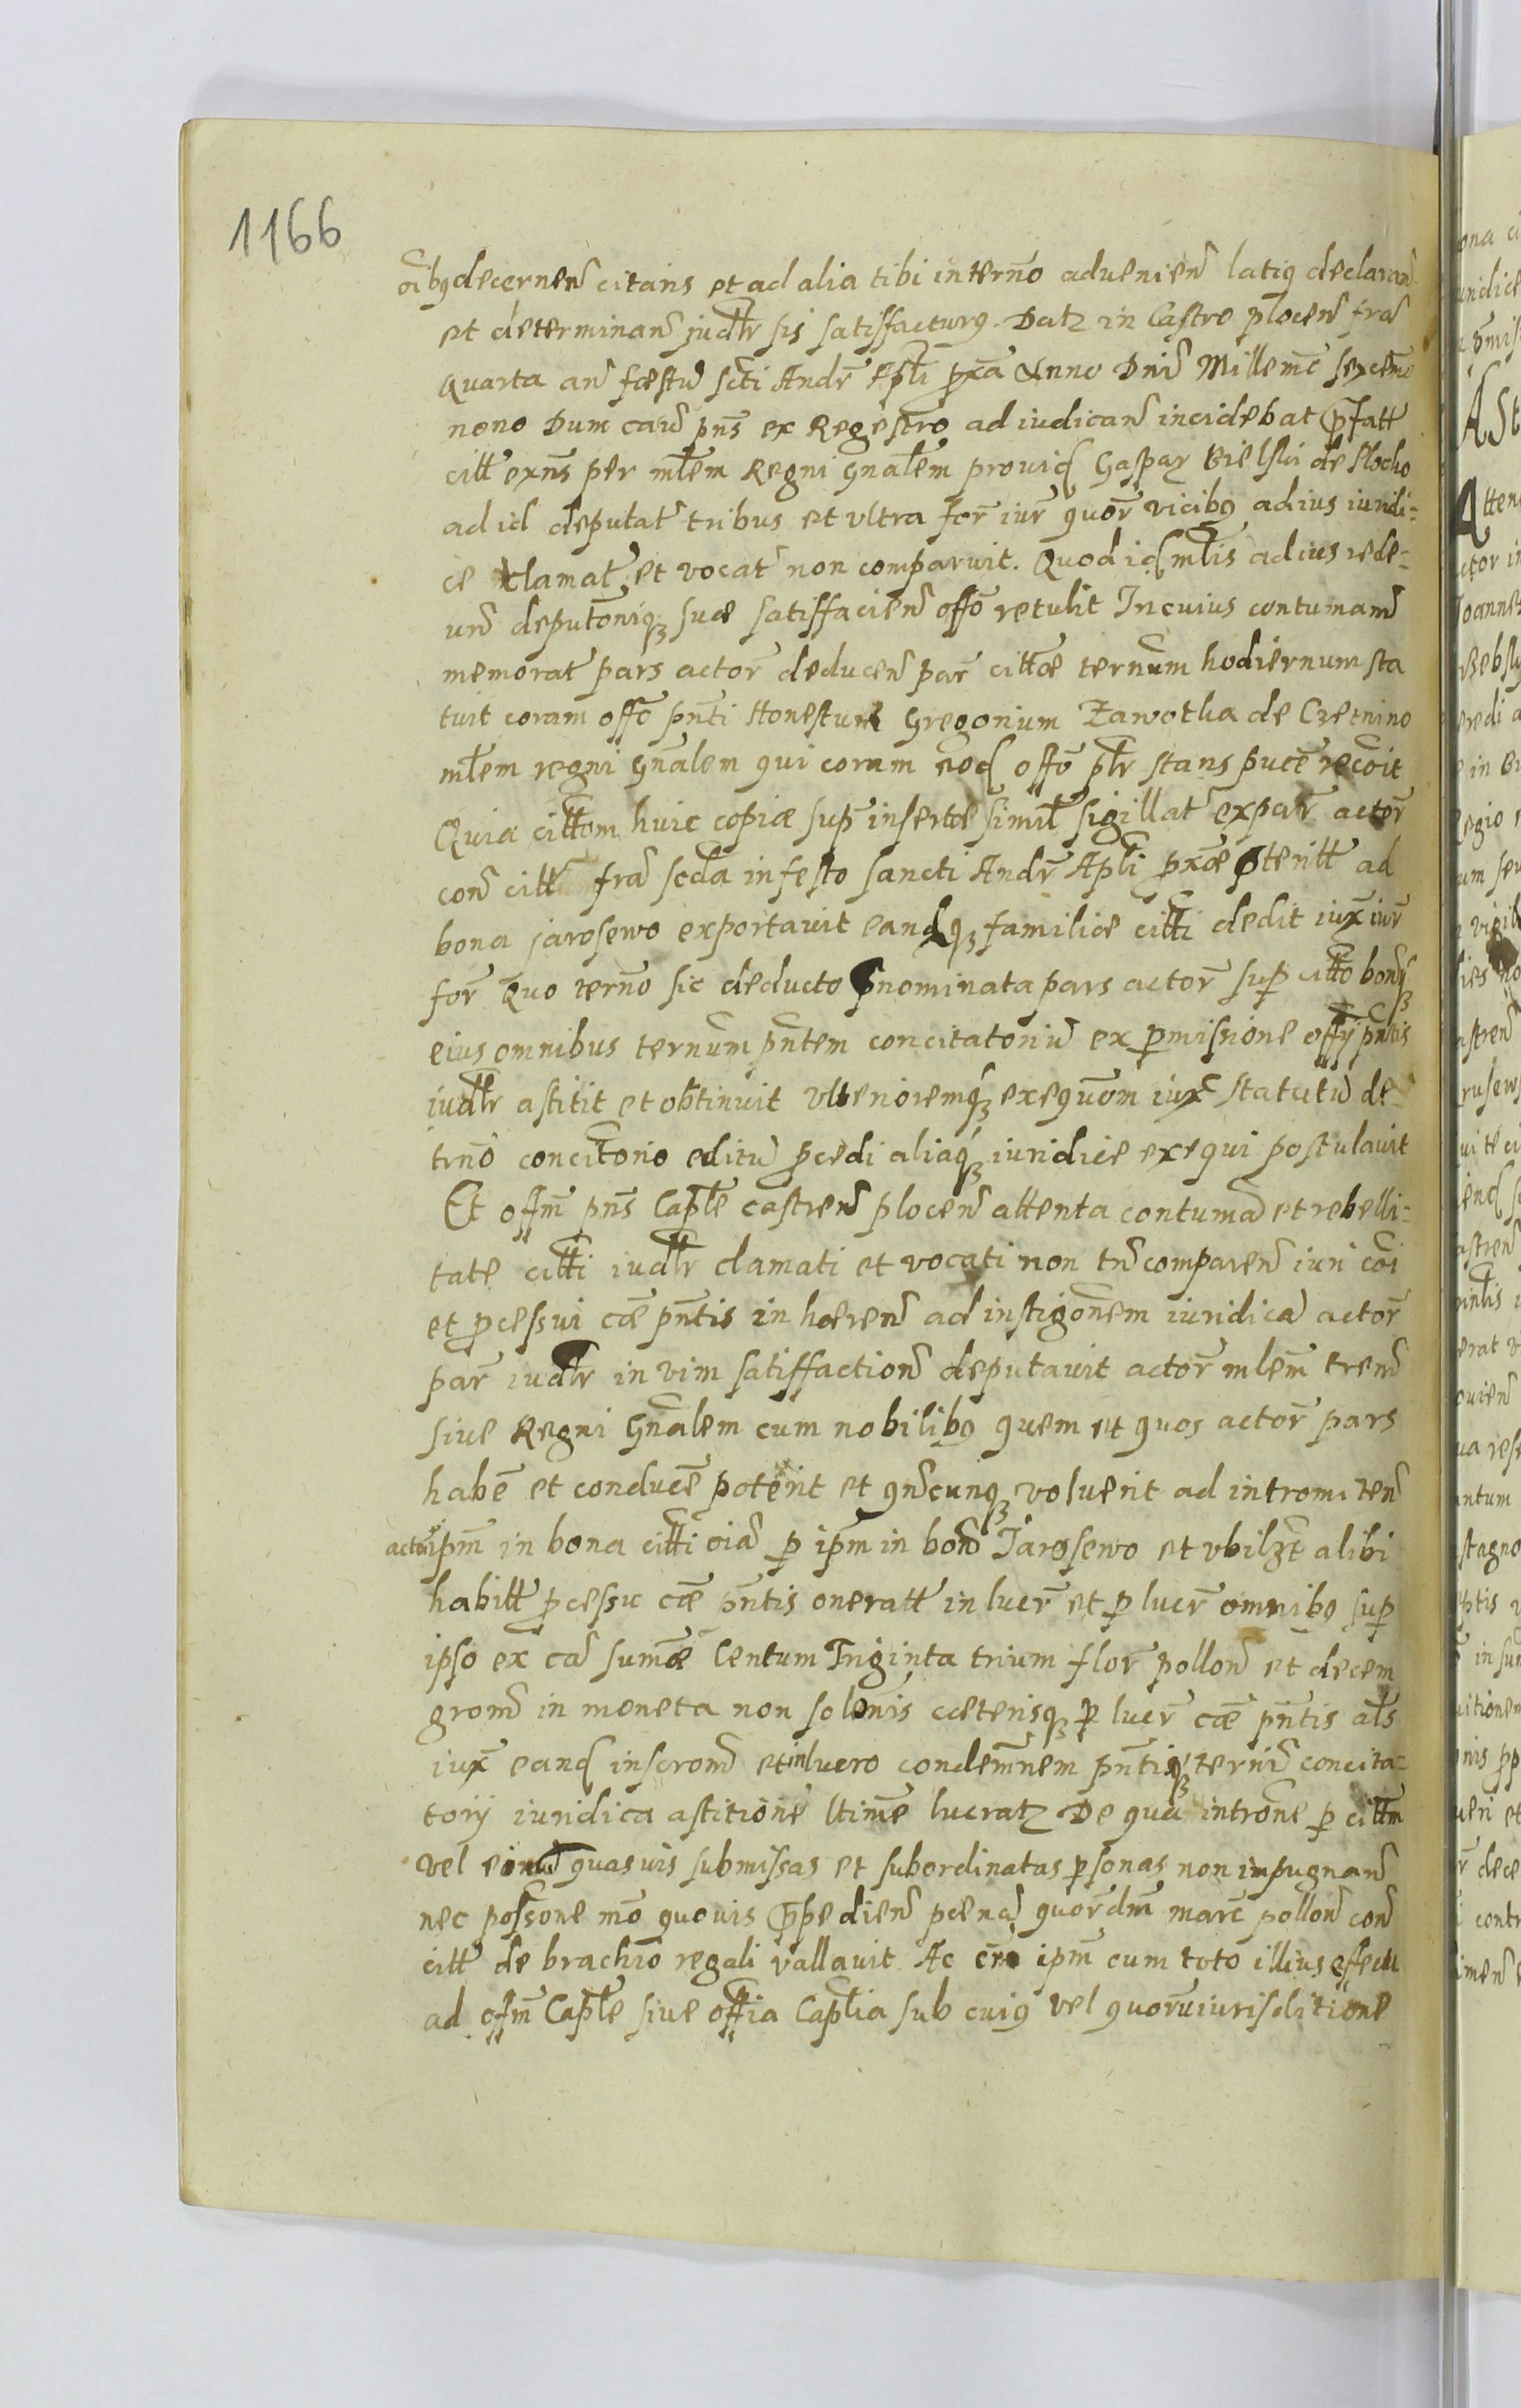 1166
oibq decernen citans et ad alia tibi in terno aduenien latiq declaran
et determinan judlr sis satisfacturq. Datz in Castro plocen fra
quarta an fæstu scti Andr Apli pxa Anno Dni Millemc sexctmo
nono Dum caus pns ex Regestro ad iudican incidebat pfatt
citt exns per mlem Regni gnalem provid Gaspar Bielski de Plocko
ad id deputat tribus et vltra for iur quor vicibq ad ius iuridi:
ce clamat et vocat non comparuit. Quod id mlis ad ius rede-
un deputoniq suæ satisfacien offo retulit In cuius contumam
memorat pars actor deducen par cittæ ternum hodiernum sta
tuit coram offo pnti Honestum Gregorium Zawotka de Czetnino
mlem regni gnalem qui coram eod offo plr stans puce recoit
Quia cittom huic copiæ sup insertæ simil sigillat ex par actor
con citt fra scda in festo sancti Andr Apli pxæ pteritt ad
bona jarosewo exportavit eandq familiæ citti dedit iux iur
for Quo terno sic deducto pnominata pars actor sup citto bonisq
eius omnibus ternum pntem concitatoriu ex pmissione offy pntis
iudlr astitit et obtinuit vlterioremq exequom iux statutu de
trno concitorio editu pcedi aliaq iuridice exequi postulavit
Et offm pns Caple castren plocen attenta contuma et rebelli:
tate citti iudlr clamati et vocati non tn comparen iuri coi
et pcessui cæ pntis in hæren ad instigonem iuridica actor
par iudlr in vim satisfaction deputavit actor mlem tren
siue Regni Gnalem cum nobilibq quem et quos actor pars
habe et conduce poterit et qncunq voluerit ad intromitten
actor ipm in bona citti oia p ipm in bon Jarosewo et vbilzt alibi
habitt pcessu cæ pntis oneratt in lucr et p lucr omnibq sup
ipso ex ca sumæ Centum Triginta trium flor pollon et decem
grom in moneta non solonis cæterisq p lucr cæ pntis als
iux eand inscrom et in lucro condemnem pntisq terni concita-
torij iuridica astitione ltime lucratz De qua introne p cittm
vel eius quasuis submissas et subordinatas psonas non impugnan
nec possone mo quouis ppedien pœna quordm marc pollon con
citt de brachio regali vallauit Ac cro ipm cum toto illius effectu
ad offm Caple siue offia Caplia sub cuiq vel quorviurisditione